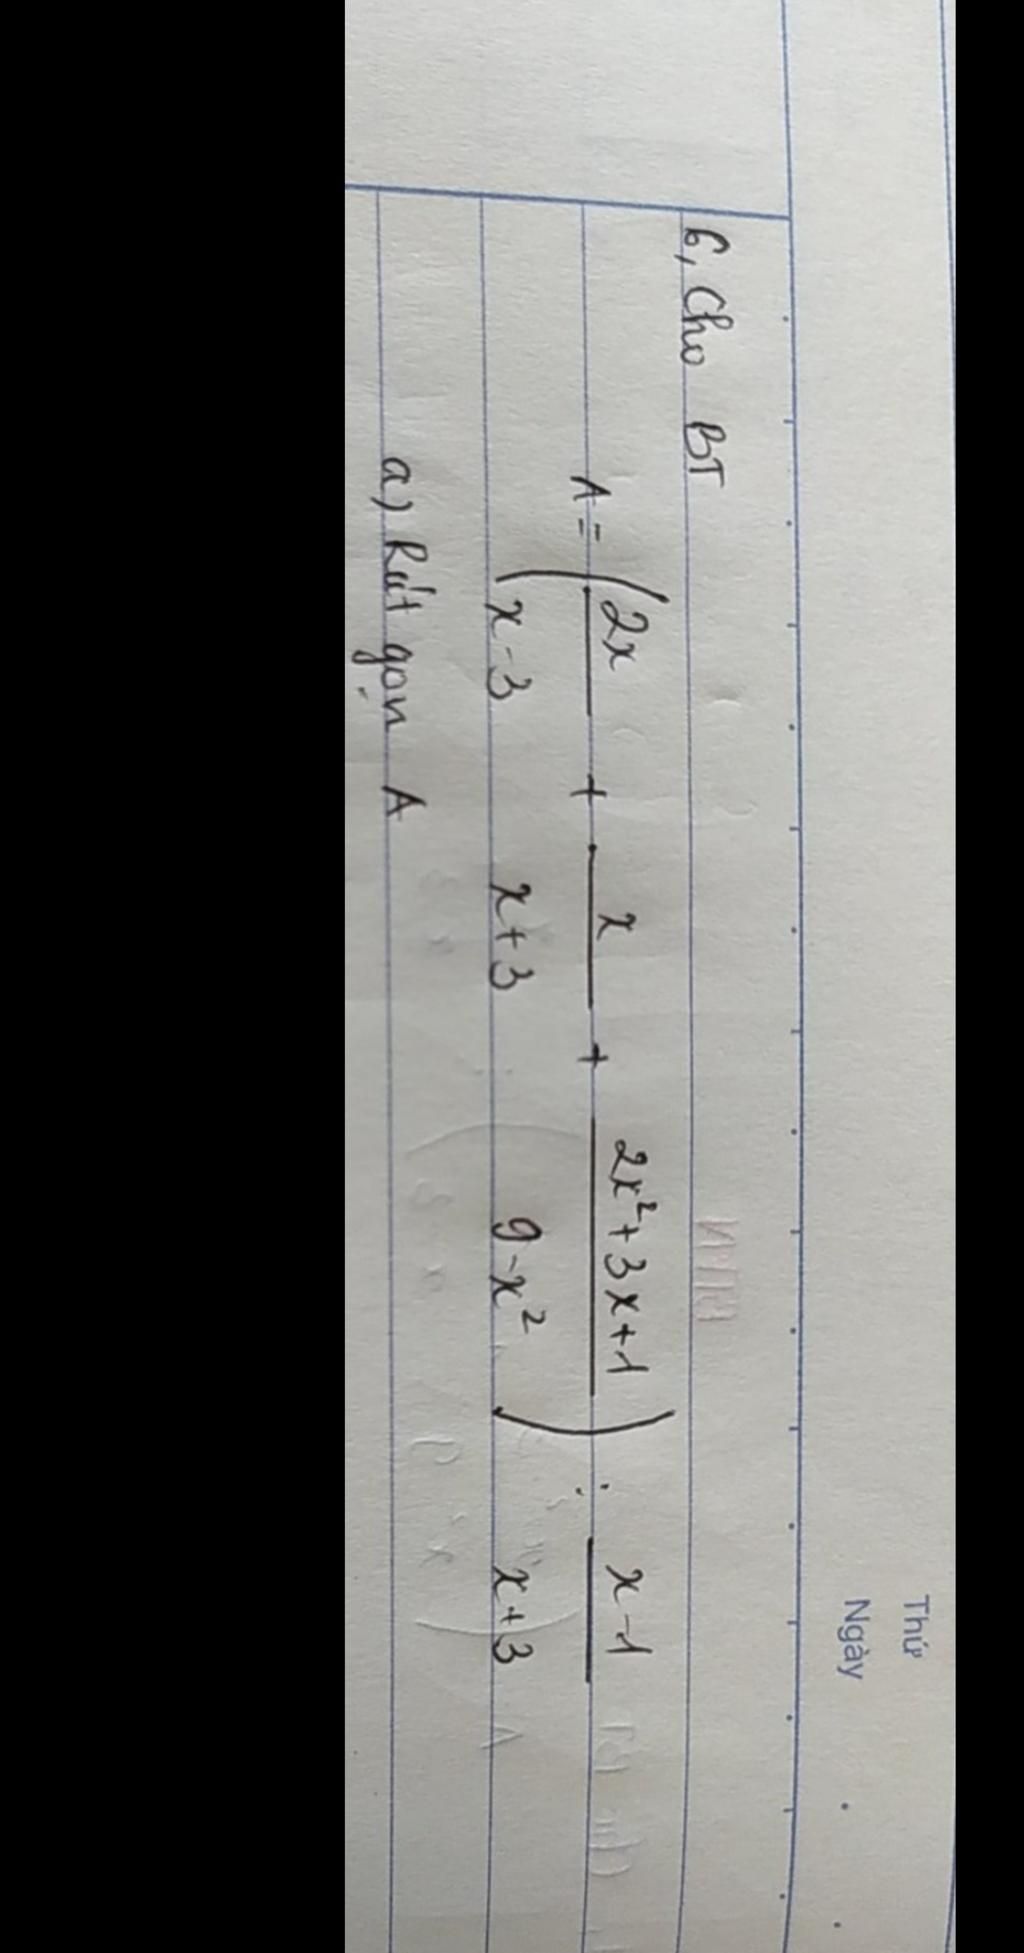 Thứ
Ngày
6, Cho BT
A = (2x/(x-3) + x/(x+3) + (2x²+3x+1)/(9-x²)) : (x-1)/(x+3)
a) Rút gọn A